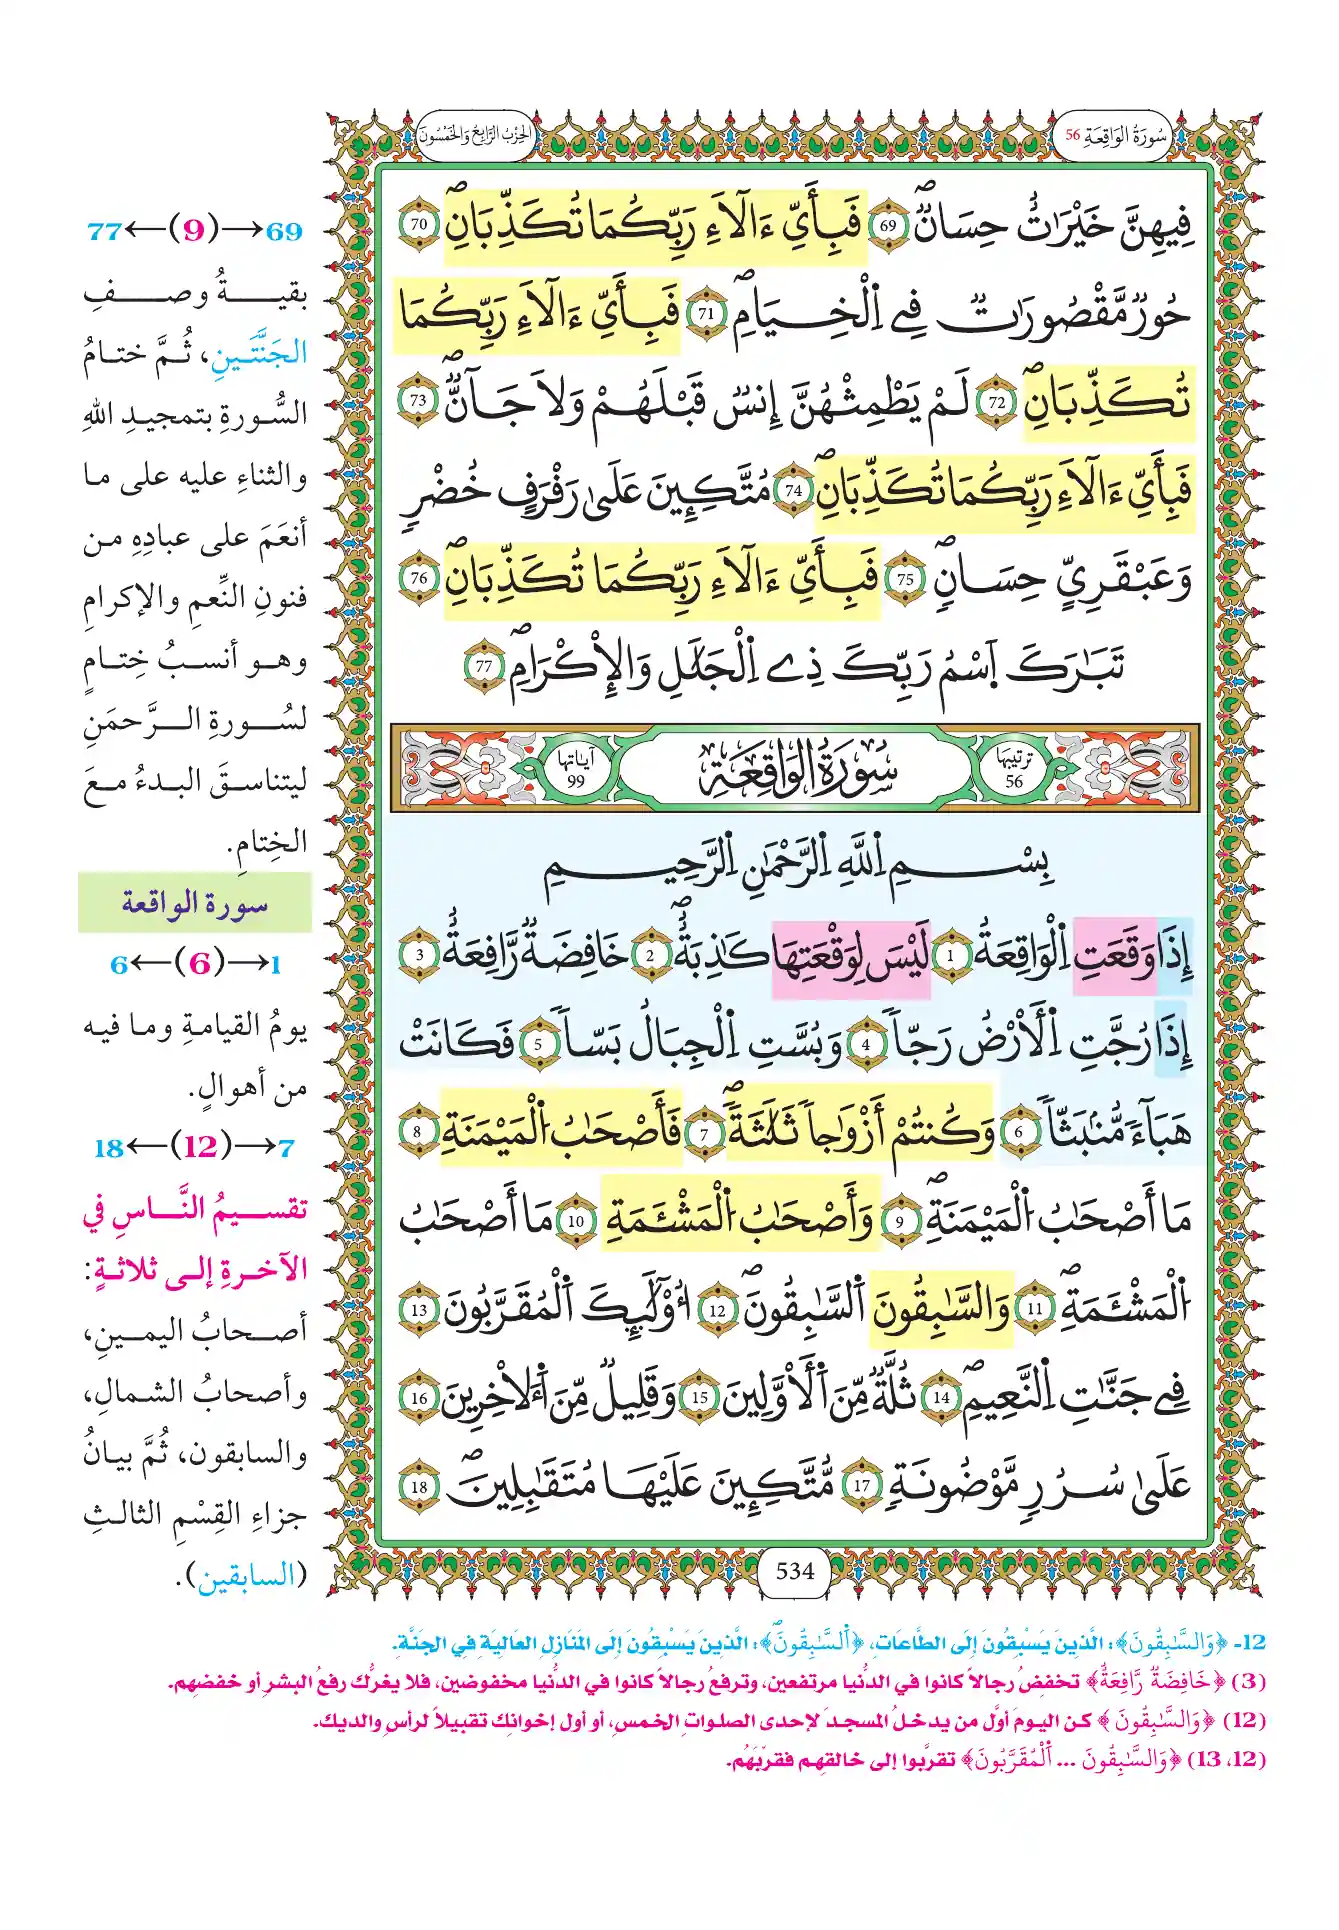 سُورَةُ الوَاقِعَةِ 56
الحِزْبُ الرَّابِعُ وَالخَمْسُونَ
فِيهِنَّ خَيْرَٰتٌ حِسَانٌ 69 فَبِأَيِّ ءَالَآءِ رَبِّكُمَا تُكَذِّبَانِ 70
حُورٌ مَّقْصُورَٰتٌ فِي اِ۬لْخِيَامِ 71 فَبِأَيِّ ءَالَآءِ رَبِّكُمَا
تُكَذِّبَانِ 72 لَمْ يَطْمِثْهُنَّ إِنسٌ قَبْلَهُمْ وَلَا جَآنٌّ 73
فَبِأَيِّ ءَالَآءِ رَبِّكُمَا تُكَذِّبَانِ 74 مُتَّكِـِٕينَ عَلَىٰ رَفْرَفٍ خُضْرٍ
وَعَبْقَرِيٍّ حِسَانٍ 75 فَبِأَيِّ ءَالَآءِ رَبِّكُمَا تُكَذِّبَانِ 76
تَبَٰرَكَ اَ۪سْمُ رَبِّكَ ذِي اِ۬لْجَلَٰلِ وَالْإِكْرَامِ 77
ترتيبها 56 سُورَةُ الوَاقِعَةِ آياتها 99
بِسْمِ اِ۬للَّهِ اِ۬لرَّحْمَٰنِ اِ۬لرَّحِيمِ
إِذَا وَقَعَتِ اِ۬لْوَاقِعَةُ 1 لَيْسَ لِوَقْعَتِهَا كَاذِبَةٌ 2 خَافِضَةٌ رَّافِعَةٌ 3
إِذَا رُجَّتِ اِ۬لْأَرْضُ رَجّاً 4 وَبُسَّتِ اِ۬لْجِبَالُ بَسّاً 5 فَكَانَتْ
هَبَآءً مُّنۢبَثّاً 6 وَكُنتُمْ أَزْوَٰجاً ثَلَٰثَةً 7 فَأَصْحَٰبُ اُ۬لْمَيْمَنَةِ 8
مَا أَصْحَٰبُ اُ۬لْمَيْمَنَةِ 9 وَأَصْحَٰبُ اُ۬لْمَشْـَٔمَةِ 10 مَا أَصْحَٰبُ
اُ۬لْمَشْـَٔمَةِ 11 وَالسَّٰبِقُونَ اَ۬لسَّٰبِقُونَ 12 أُوْلَٰٓئِكَ اَ۬لْمُقَرَّبُونَ 13
فِي جَنَّٰتِ اِ۬لنَّعِيمِ 14 ثُلَّةٌ مِّنَ اَ۬لْأَوَّلِينَ 15 وَقَلِيلٌ مِّنَ اَ۬لْأٓخِرِينَ 16
عَلَىٰ سُرُرٍ مَّوْضُونَةٍ 17 مُّتَّكِـِٕينَ عَلَيْهَا مُتَقَٰبِلِينَ 18
534
69→(9)←77
بقيةُ وصفِ
الجَنَّتَينِ، ثُمَّ ختامُ
السُّورةِ بتمجيدِ اللهِ
والثناءِ عليه على ما
أنعَمَ على عبادِهِ من
فنونِ النِّعمِ والإكرامِ
وهو أنسبُ خِتامٍ
لسُورةِ الرَّحمَنِ
ليتناسقَ البدءُ معَ
الخِتامِ.
سورة الواقعة
1→(6)←6
يومُ القيامةِ وما فيه
من أهوالٍ.
7→(12)←18
تقسيمُ النَّاسِ في
الآخرةِ إلى ثلاثةٍ:
أصحابُ اليمينِ،
وأصحابُ الشمالِ،
والسابقون، ثُمَّ بيانُ
جزاءِ القِسْمِ الثالثِ
(السابقين).
12- ﴿وَالسَّٰبِقُونَ﴾: الَّذِينَ يَسْبِقُونَ إِلَى الطَّاعَاتِ، ﴿اَ۬لسَّٰبِقُونَ﴾: الَّذِينَ يَسْبِقُونَ إِلَى المَنَازِلِ العَالِيَةِ فِي الجَنَّةِ.
(3) ﴿خَافِضَةٌ رَّافِعَةٌ﴾ تخفضُ رجالًا كانوا في الدُّنيا مرتفعين، وترفعُ رجالًا كانوا في الدُّنيا مخفوضين، فلا يغرُّك رفعُ البشرِ أو خفضُهِم.
(12) ﴿وَالسَّٰبِقُونَ﴾ كن اليومَ أوَّل من يدخلُ المسجدَ لإحدى الصلواتِ الخمسِ، أو أول إخوانِك تقبيلًا لرأسِ والديك.
(12، 13) ﴿وَالسَّٰبِقُونَ ... اَ۬لْمُقَرَّبُونَ﴾ تقرَّبوا إلى خالقِهِم فقرَّبَهُم.